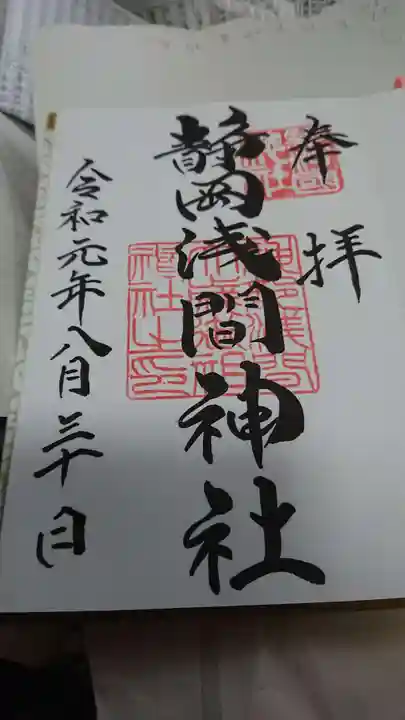 奉拝
静岡浅間神社
令和元年八月三十日